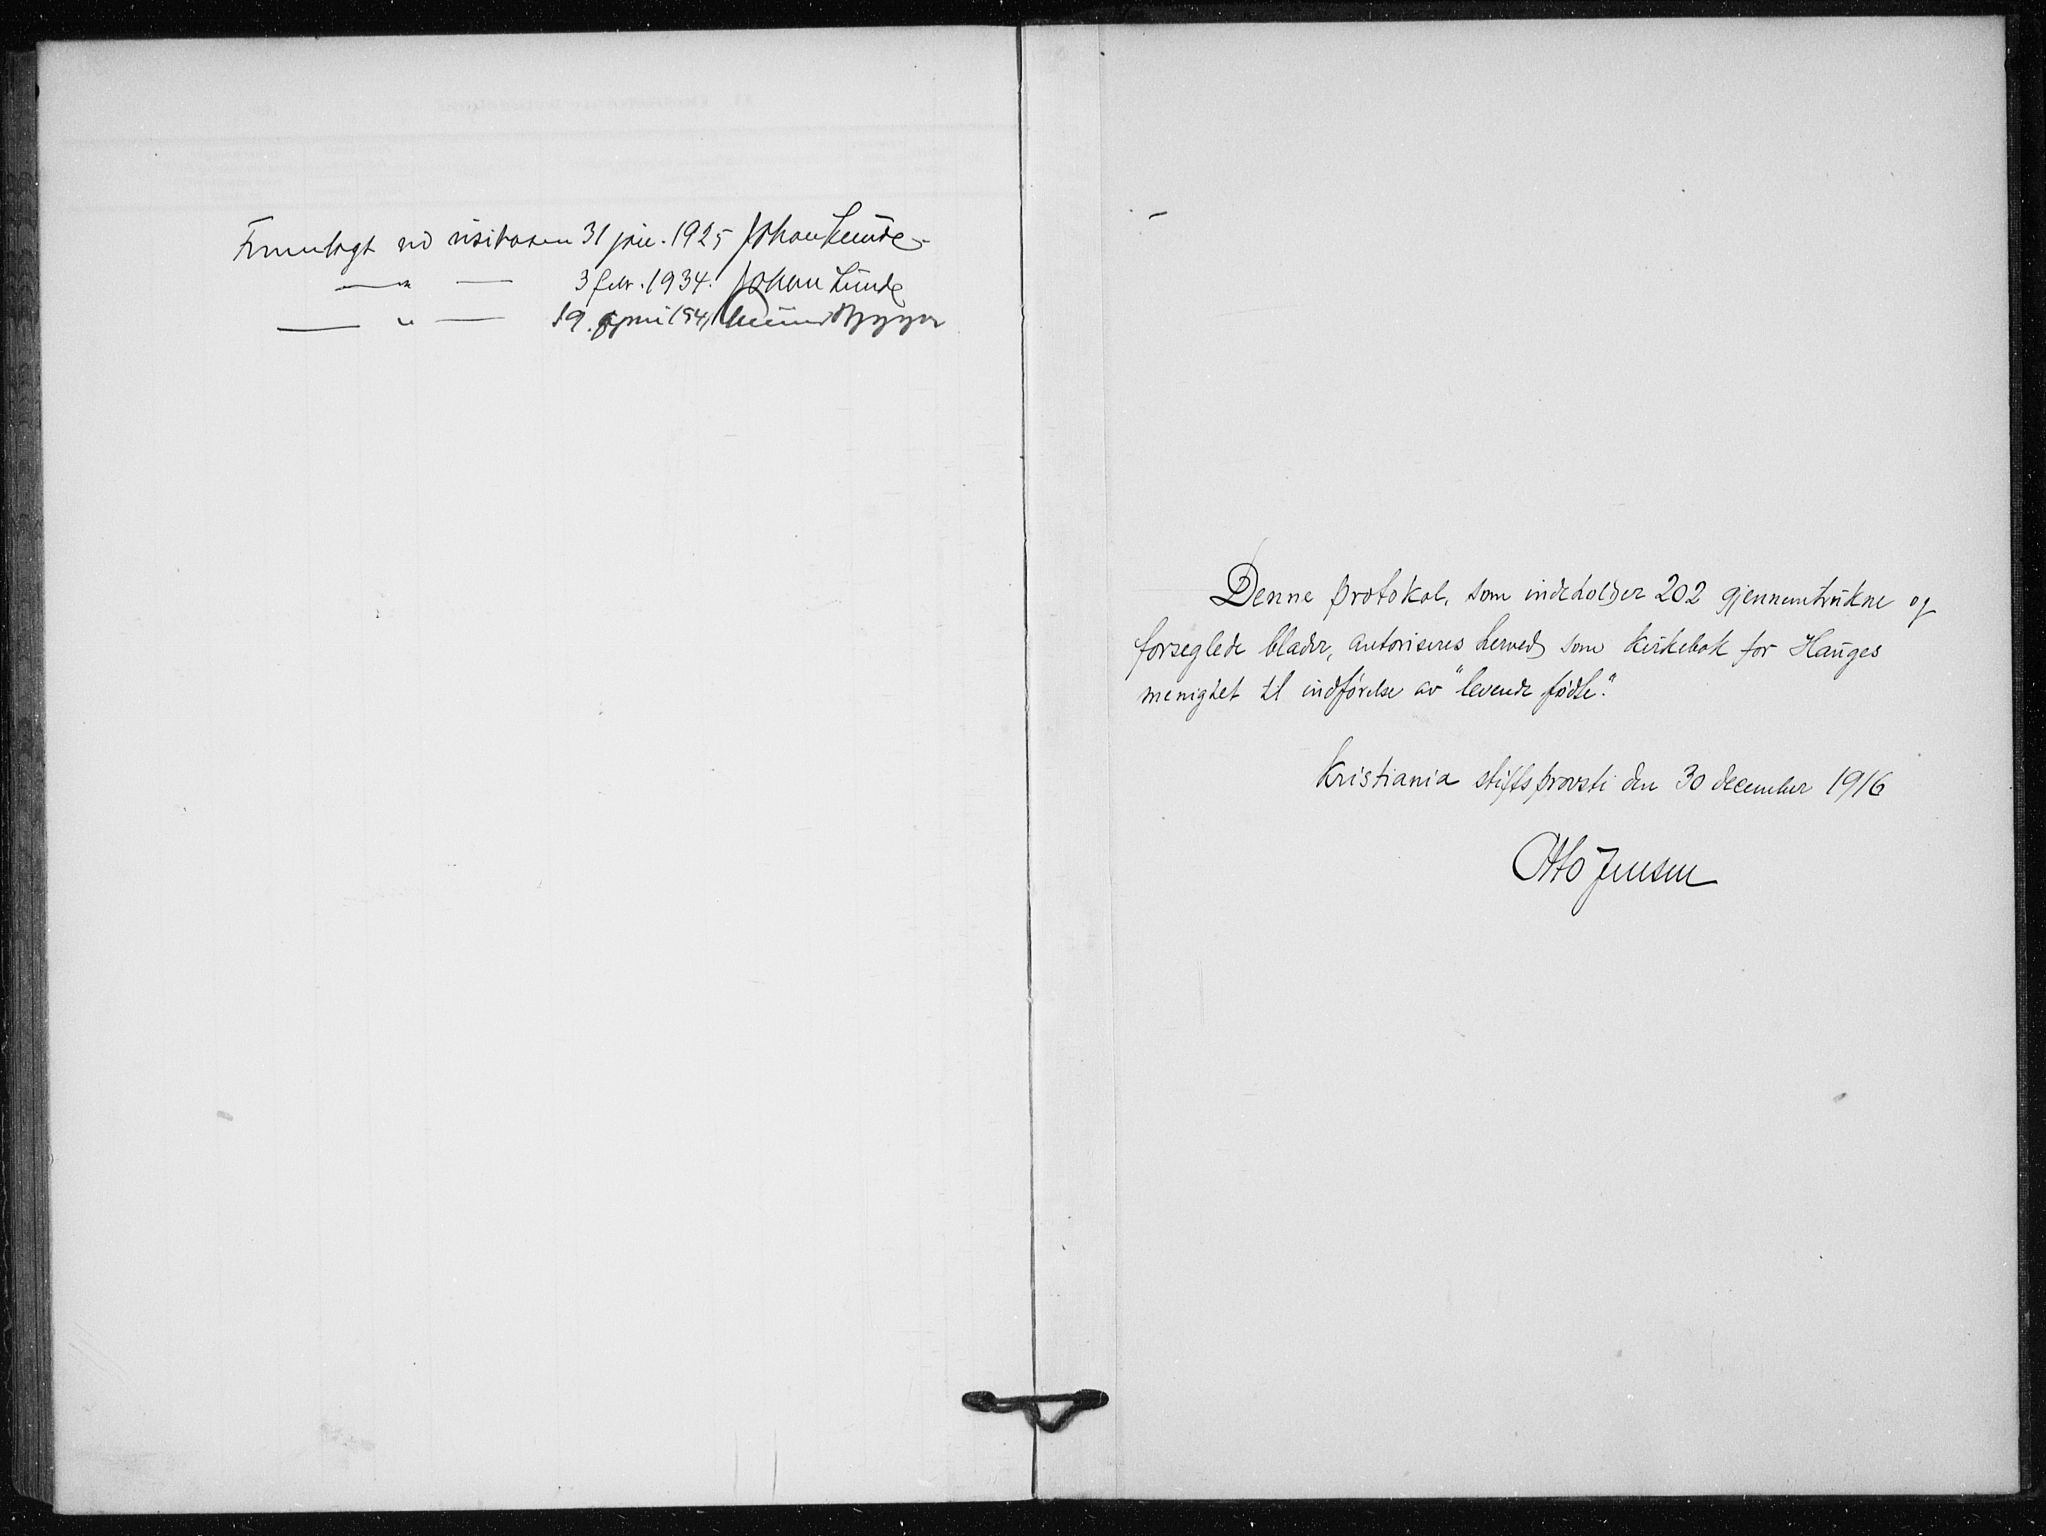 Fremlagt ved visitasen 31 jan. 1925 Johan Lunde
— " — 3 febr. 1934. Johan Lunde
— " — 19. april 1941
Denne protokol, som indeholder 202 gjennemtrukne og
forseglede blader, autoriseres herved som kirkebok for Hauges
menighet til indførelse av "levende fødte."
Kristiania stiftsprovsti den 30 december 1916
Otto Jensen